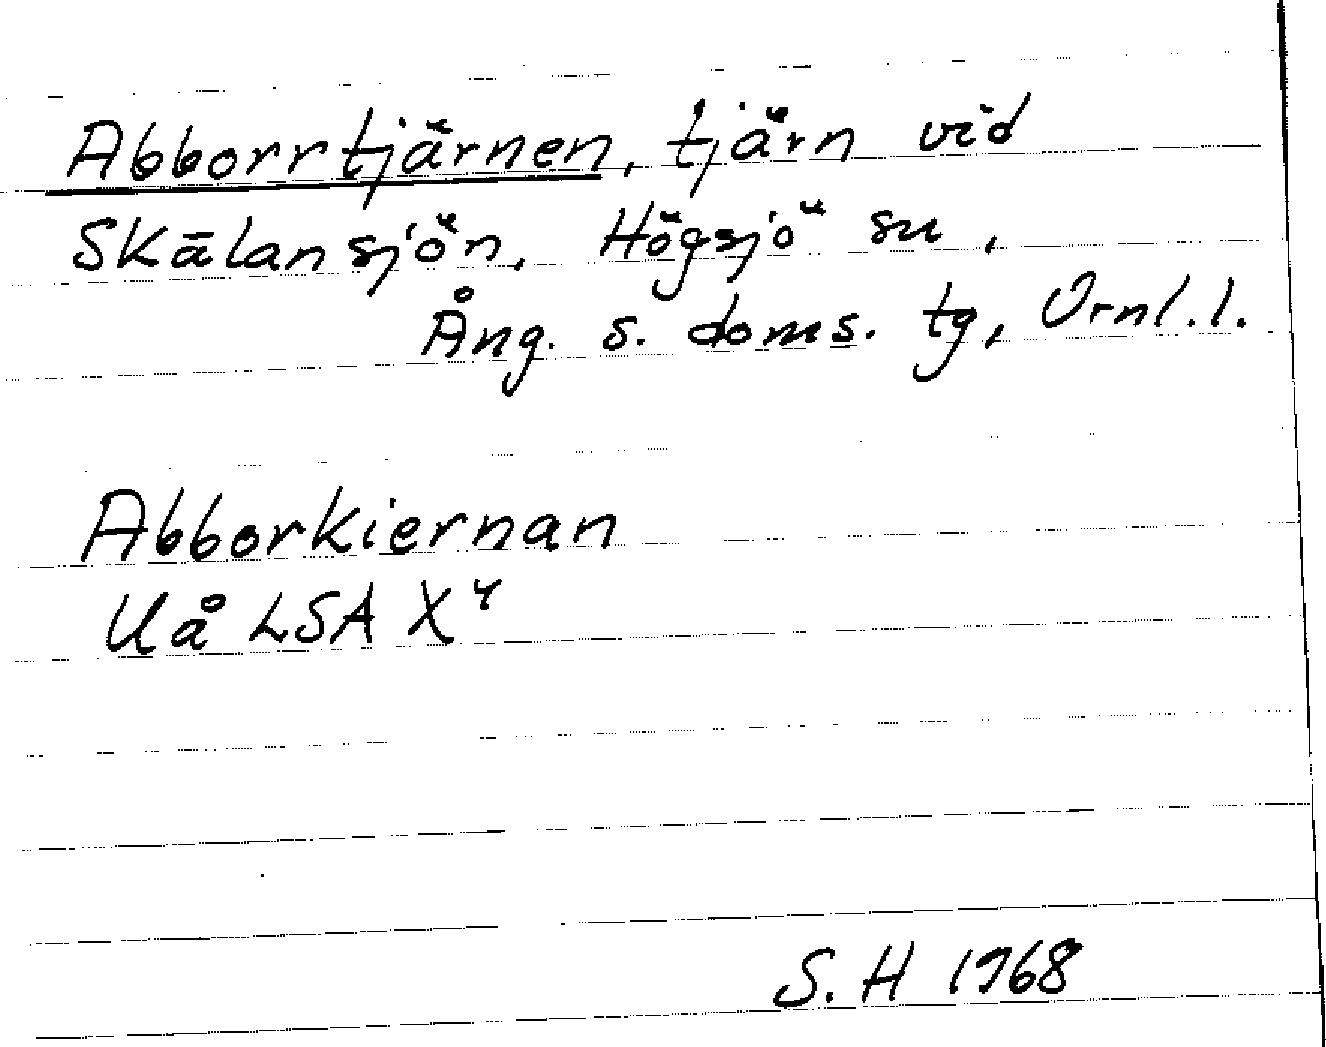 Abborrtjärnen, tjärn vid
Skälansjön, Högsjö sn,
Ång. s. doms. tg, Vrnl.l.
Abborkiernan
Uå LSA X4
S.H 1968